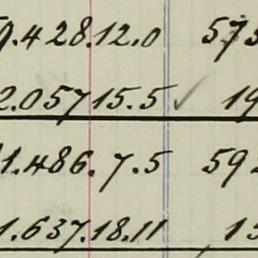 9.428.12.0 575
2.057 15.5 ✓ 19
1.486.7.5 592
1.637.18.11 15